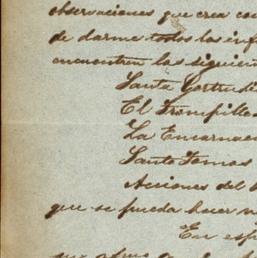 observaciones que crea con
de darme todos los inf
encuentran las siguien
Santa Gertrudi
El Trompillo
La Encarnac
Santo Tomas
Acciones del
que se pueda hacer
En esp